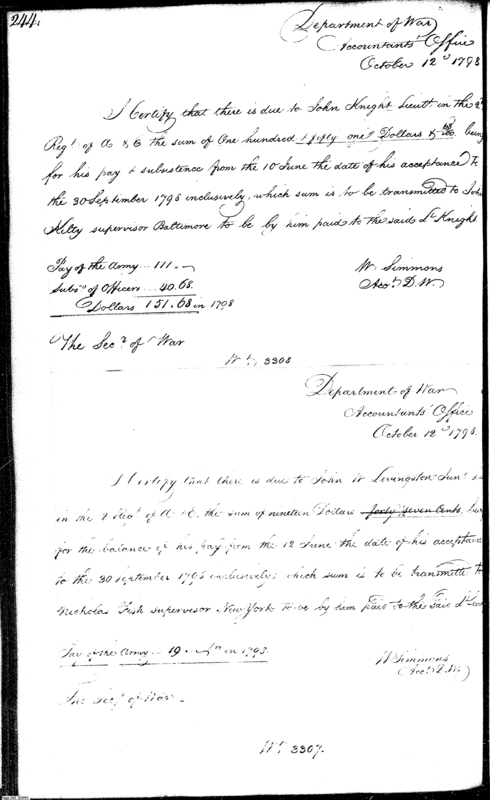 244.
Department of War
Accountants' Office
October 12th 1798
I Certify that there is due to John Knight Lieut. in the 2d
Regt. of A & E the sum of One hundred & fifty one Dollars & 68/100 being
for his pay & subsistence from the 10 June the date of his acceptance to
the 30 September 1798 inclusively, which sum is to be transmitted to John
Kilty supervisor Baltimore to be by him paid to the said Lt Knight
Pay of the Army ... 111. -
Subs. of Officers ... 40.68.
Dollars 151.68 in 1798
W. Simmons
Acct. D.W.
The Secy. of War
No. 3308
Department of War
Accountants' Office
October 12th 1798.
I Certify that there is due to John W Livingston Junr
in the 2 Regt. of A. & E. the sum of nineteen Dollars forty seven Cents, being
for the balance of his pay from the 12 June the date of his acceptance
to the 30 September 1798 inclusively; which sum is to be transmitted to
Nicholas Fish supervisor New York to be by him paid to the said Lt
Pay of the Army .. 19. in 1798.
W. Simmons
Acct. D.W.
The Secy. of War -
No. 3307.